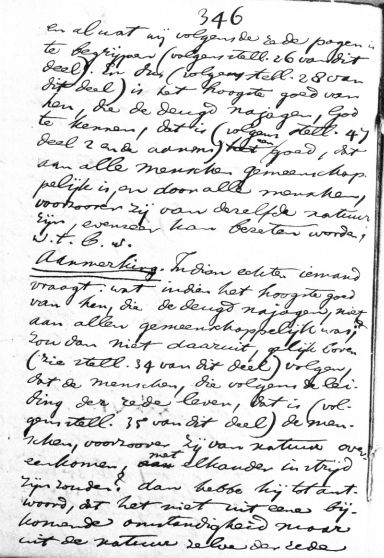 346
en al wat wij volgens de rede pogen is
te begrijpen (volgens stell. 26 van dit
deel). En dus (volgens stell. 28 van
dit deel) is het hoogste goed van
hen, die de deugd najagen, God
te kennen, dat is (volgens stell. 47
deel 2 en de aanm.) een goed, dat
aan alle menschen gemeenschap-
pelijk is, en door alle menschen,
voorzoover zij van dezelfde natuur
zijn, evenzeer kan bezeten worden;
w. t. b. w.
Aanmerking. Indien echter iemand
vraagt: wat indien het hoogste goed
van hen, die de deugd najagen, niet
aan allen gemeenschappelijk was;
zou dan niet daaruit, gelijk boven
(zie stell. 34 van dit deel) volgen,
dat de menschen, die volgens de lei-
ding der rede leven, dat is (vol-
gens stell. 35 van dit deel) de men-
schen, voorzoover zij van natuur over-
eenkomen, met elkander in strijd
zijn zouden? dan hebbe hij tot ant-
woord, dat het niet uit eene bij-
komende omstandigheid maar
uit de natuur zelve der rede